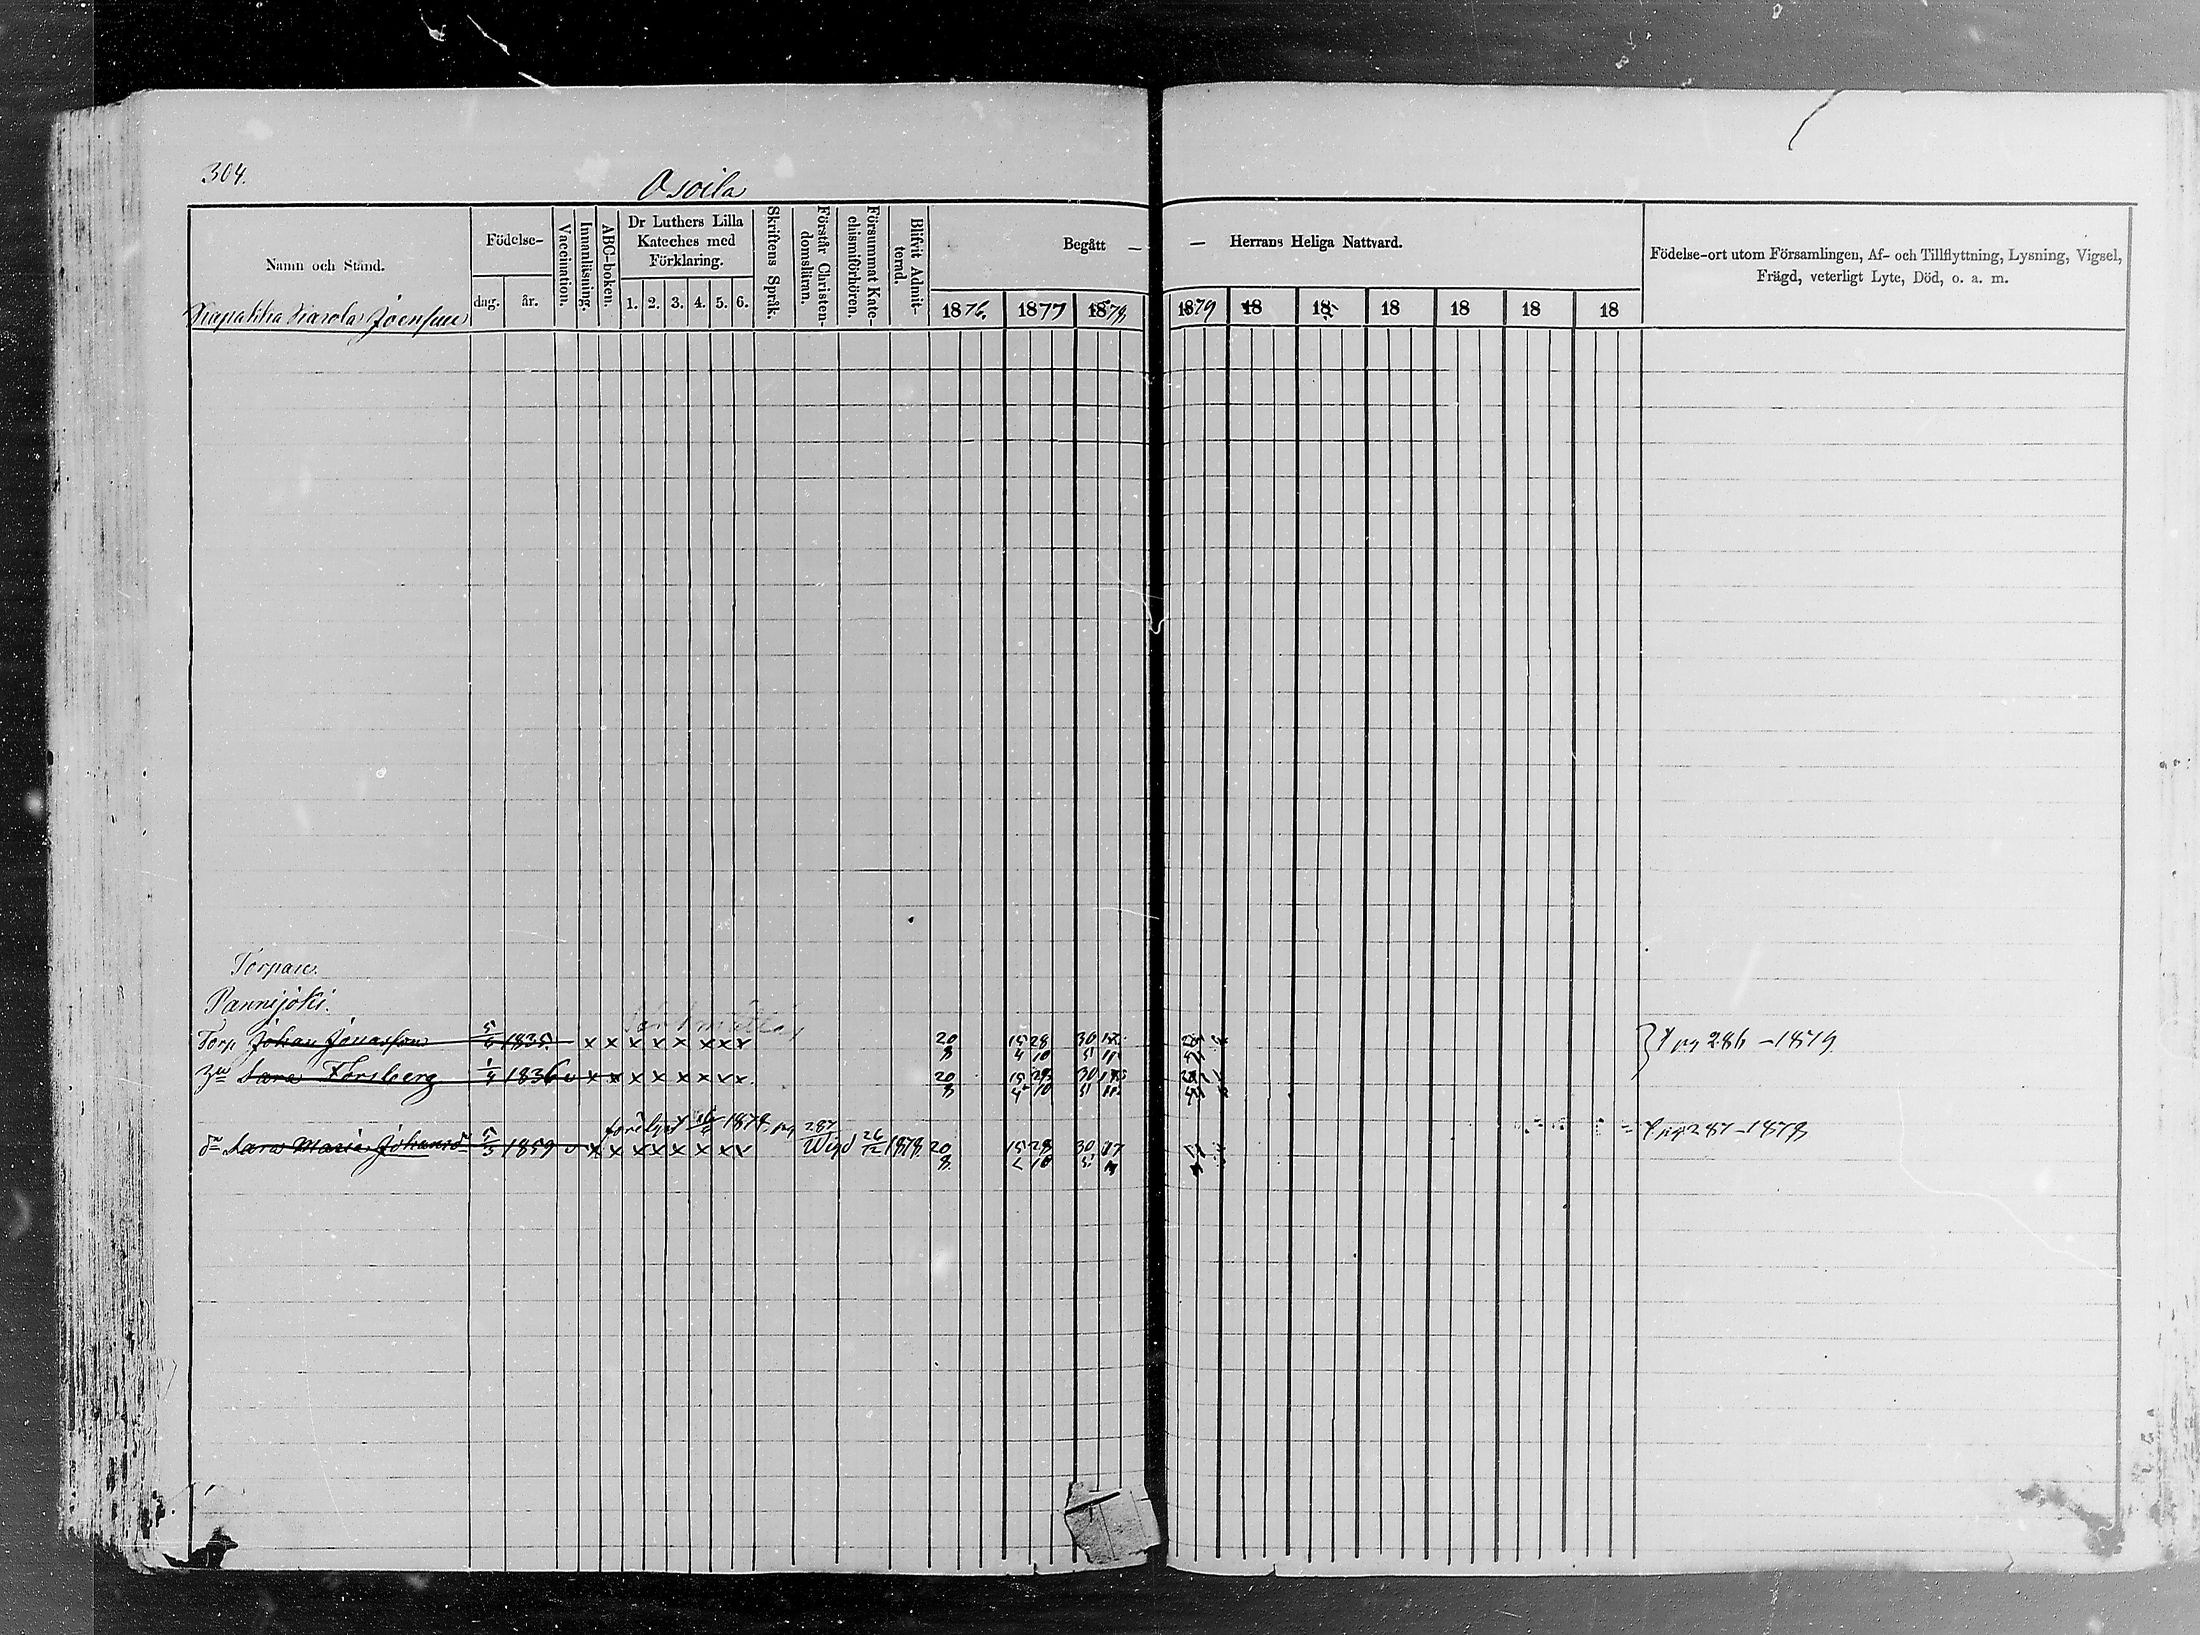 304.
Osoila
Namn och Stånd.
Födelse-
dag. år.
Vaccination.
Innanläsning.
ABC-boken.
Dr Luthers Lilla
Kateches med
Förklaring.
1. 2. 3. 4. 5. 6.
Skriftens Språk.
Förstår Christen-
domsläran.
Försummat Kate-
chismiförhören.
Blifvit Admit-
terad.
Begått — — Herrans Heliga Nattvard.
1876. 1877 1879 1879 18 18 18 18 18 18
Födelse-ort utom Församlingen, Af- och Tillflyttning, Lysning, Vigsel,
Frägd, veterligt Lyte, Död, o. a. m.
Joensuu
Torpare.
Pannijoki.
Torp Johan Jonasson 5/6 1835. x x x x x x x x 20/8 15/4 28/10 30/5 pg 286 - 1879
Sara Forsberg 1/4 1836 v x x x x x x x x 20/8 15/4 28/10 30/5
1878. pg 287
Sara Maria Johansdr 5/3 1859 v x x x x x x x x Wigd 26/12 1878 20/8 15 28/10 30/5 17 pg 287 - 1878